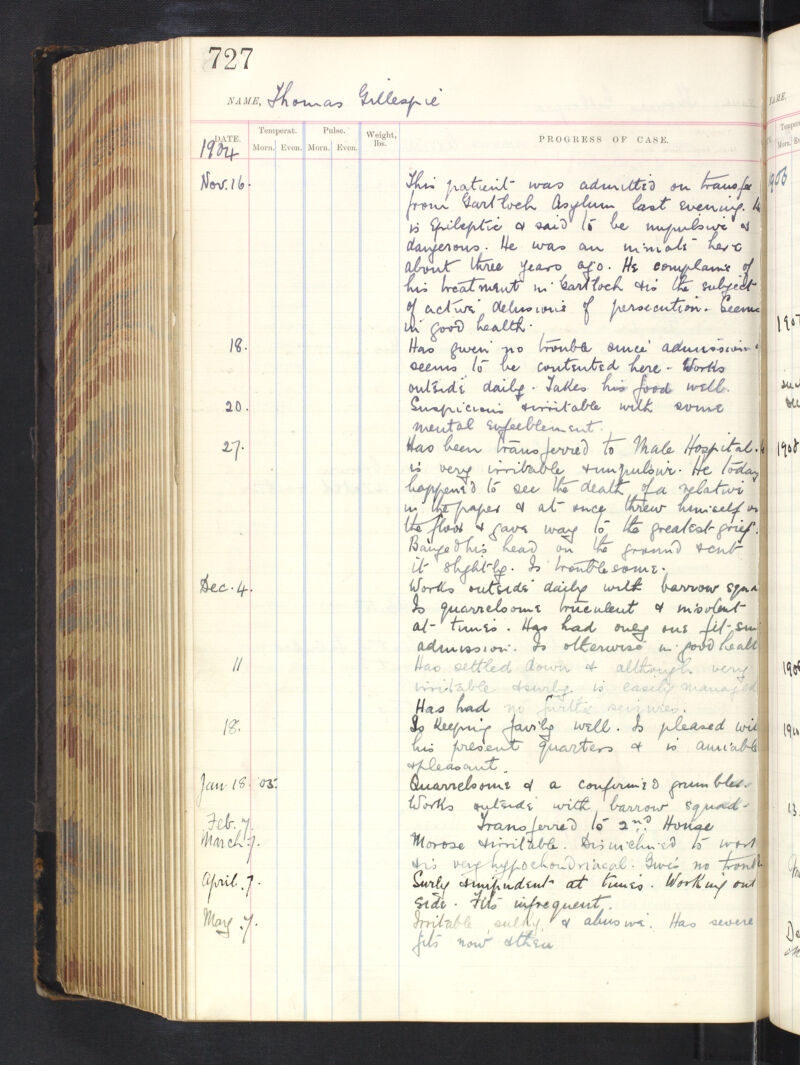 727
NAME, Thomas Gillespie
DATE. Temperat. Pulse. Weight, lbs. PROGRESS OF CASE.
1904 Morn. Even. Morn. Even.
Nov. 16. This patient was admitted on transfer
from Gartloch Asylum last evening. He
is Epileptic & said to be impulsive &
dangerous. He was an inmate here
about three years ago. He complains of
his treatment in Gartloch & is the subject
of active delusions of persecution. Seems
in good health.
18. Has given no trouble since admission.
seems to be contented here. Works
outside daily. Takes his food well.
20. Suspicious & irritable with some
mental enfeeblement.
27. Has been transferred to Male Hospital. He
is very irritable & impulsive. He today
happened to see the death of a relative
in the paper & at once threw himself on
the floor & gave way to the greatest grief.
Banged his head on the ground & cut
it slightly. Is troublesome.
Dec. 4. Works outside daily with barrow squa
Is quarrelsome truculent & insolent
at times. Has had only one fit sin
admission. Is otherwise in good healt
11 Has settled down & although very
irritable & surly is easily managed
Has had no further seizures.
18. Is keeping fairly well. Is pleased wit
his present quarters & is amiable
& pleasant.
Jan 18. 05. Quarrelsome & a confirmed grumbler.
Works outside with barrow squad.
Feb. 7. Transferred to 2nd House
March 7. Morose & irritable. Disinclined to work
& is very hypochondriacal. Gives no troub
April. 7. Surly & impudent at times. Working out
side. Fits infrequent.
May. 7. Irritable, sulky, & abusive. Has severe
fits now & then
NAME,
Temper
Morn. Ev
1907
1908
13.
De